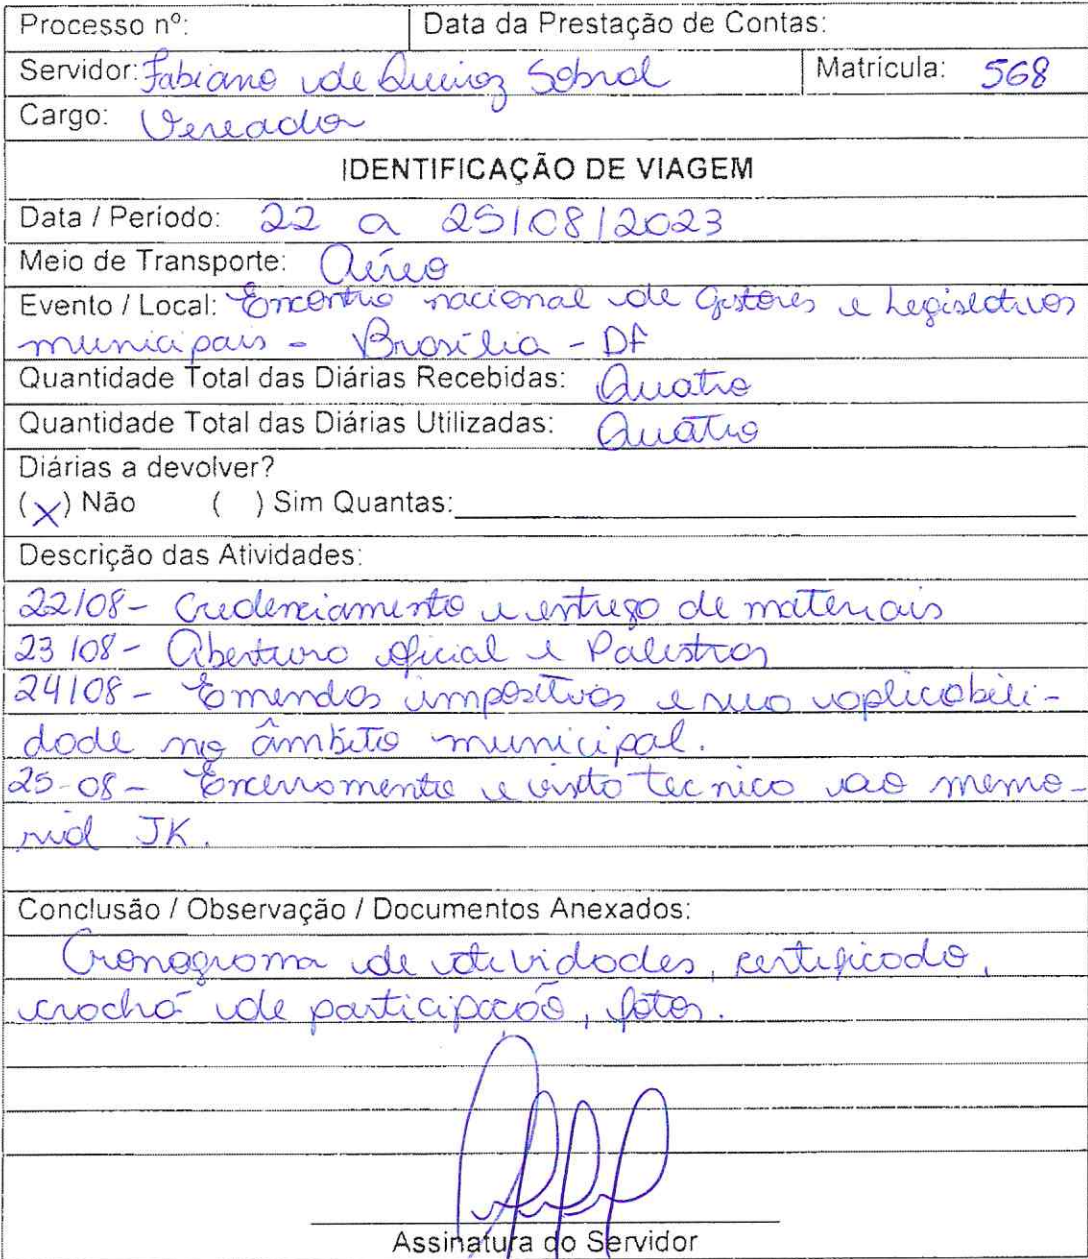 Processo nº: Data da Prestação de Contas:
Servidor: Fabiano de Queiroz Sobral Matrícula: 568
Cargo: Vereador
IDENTIFICAÇÃO DE VIAGEM
Data / Período: 22 a 25/08/2023
Meio de Transporte: Aéreo
Evento / Local: Encontro nacional de Gestores e Legislativos
municipais - Brasília - DF
Quantidade Total das Diárias Recebidas: Quatro
Quantidade Total das Diárias Utilizadas: Quatro
Diárias a devolver?
(X) Não ( ) Sim Quantas:
Descrição das Atividades:
22/08- Credenciamento e entrega de materiais
23/08- Abertura oficial e Palestras
24/08- Emendas impositivas e sua aplicabili-
dade no âmbito municipal.
25-08- Encerramento e visita tecnica ao memo-
rial JK.
Conclusão / Observação / Documentos Anexados:
Cronograma de atividades, certificado,
crachá de participação, fotos.
Assinatura do Servidor